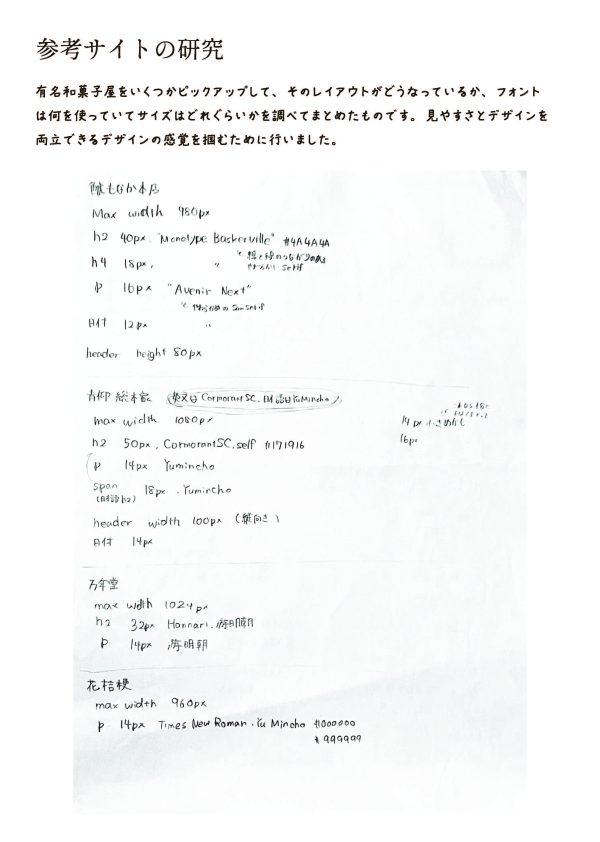 参考サイトの研究
有名和菓子屋をいくつかピックアップして、そのレイアウトがどうなっているか、フォント
は何を使っていてサイズはどれぐらいかを調べてまとめたものです。見やすさとデザインを
両立できるデザインの感覚を掴むために行いました。
もなか本店
Max width 980px
h2 40px, "Monotype Baskerville" #4A4A4A
h4 18px, 〃
serif
p 16px "Avenir Next"
日付 12px 〃
header height 80px
総本家 英文は CormorantSC, 日本語は YuMincho
max width 1080px
14px 小さめかも
16px
h2 50px, CormorantSC, self #171916
p 14px Yumincho
span 18px, Yumincho
(日本語h2)
header width 100px (縦向き)
日付 14px
万年堂
max width 1024px
h2 32px Hannari, 游明朝
p 14px 游明朝
花桔梗
max width 960px
p 14px Times New Roman, Yu Mincho #000000
#999999